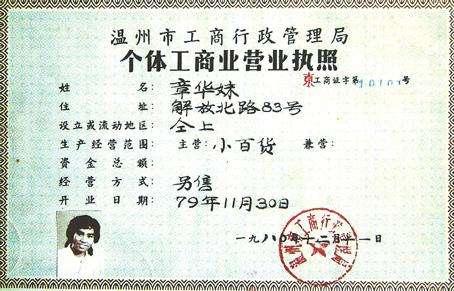 温州市工商行政管理局
个体工商业营业执照
工商证字第10101号
姓 名: 章华妹
住 址: 解放北路83号
设立或流动地区: 仝上
生产经营范围: 主营: 小百货 兼营:
资金总额:
经营方式: 另售
开业日期: 79年11月30日
一九八〇年十二月十一日
温州市工商行政管理局